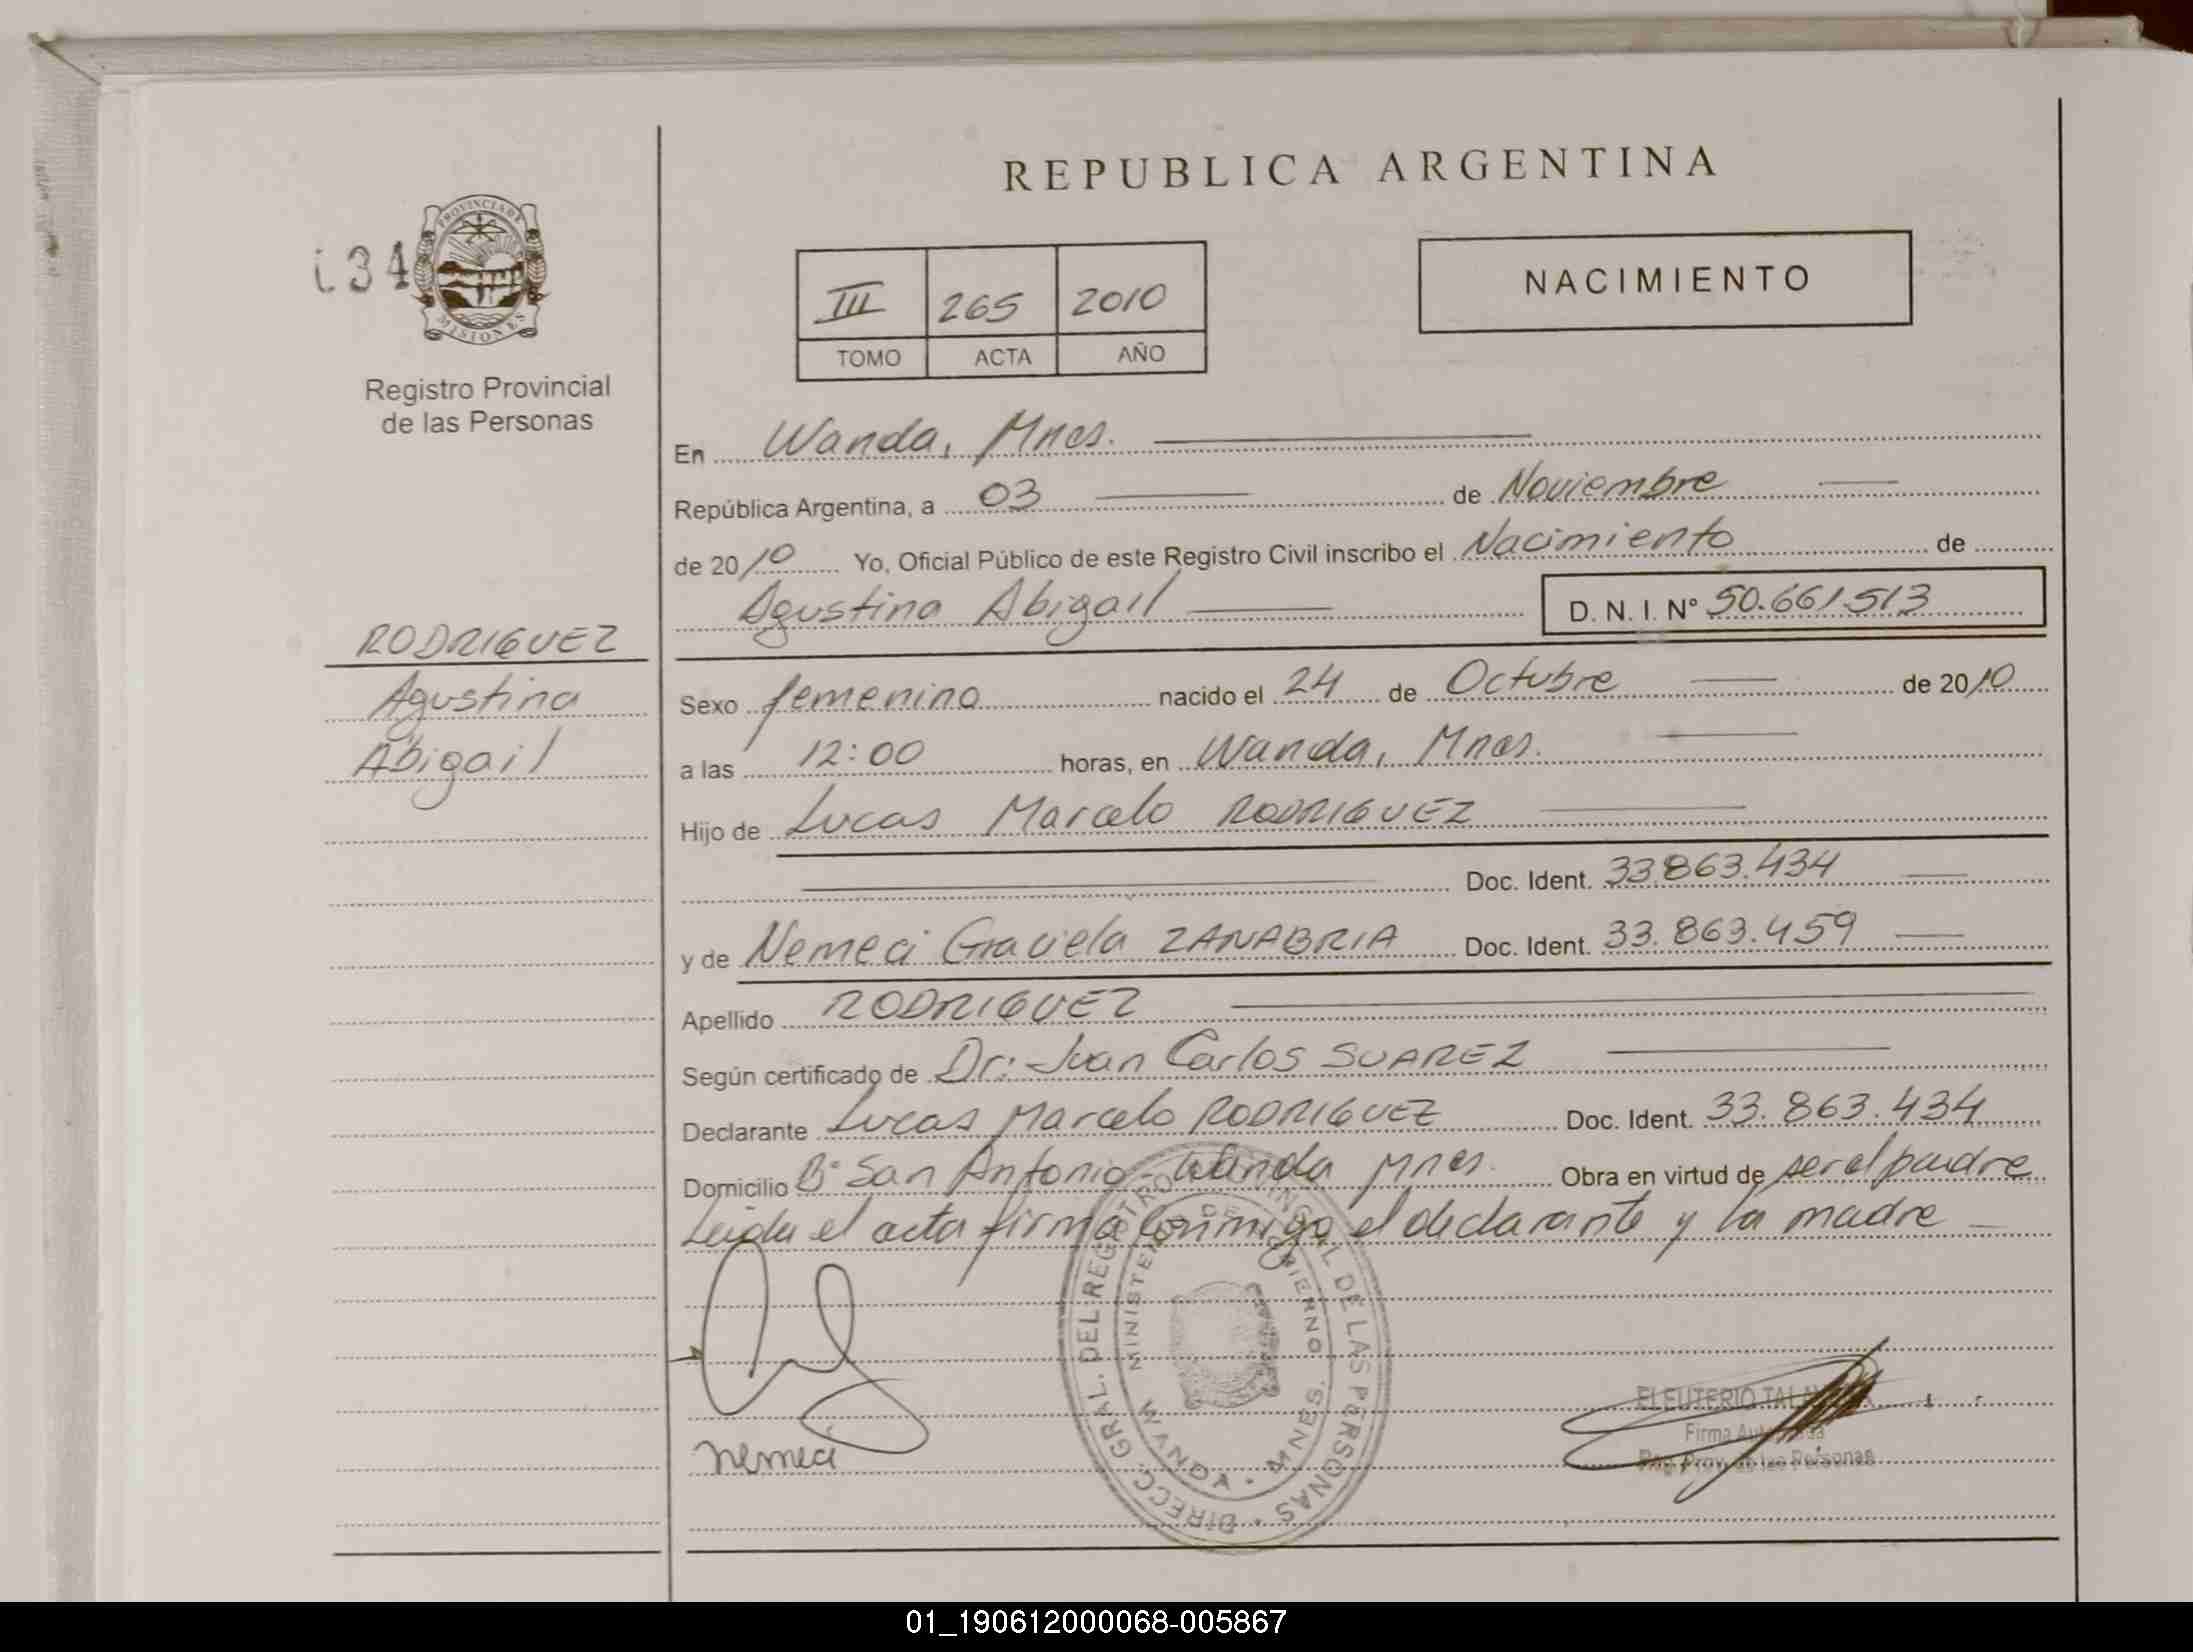 REPUBLICA ARGENTINA
134
PROVINCIA DE
MISIONES
Registro Provincial
de las Personas
III 265 2010
TOMO ACTA AÑO
NACIMIENTO
En Wanda, Mnes.
República Argentina, a 03 de Noviembre
de 2010 Yo, Oficial Público de este Registro Civil inscribo el Nacimiento de
Agustina Abigail D. N. I. N° 50.661.513
RODRIGUEZ
Agustina
Abigail
Sexo femenino nacido el 24 de Octubre de 2010
a las 12:00 horas, en Wanda, Mnes.
Hijo de Lucas Marcelo RODRIGUEZ
Doc. Ident. 33.863.434
y de Nemeci Graciela ZANABRIA Doc. Ident. 33.863.459
Apellido RODRIGUEZ
Según certificado de Dr: Juan Carlos SUAREZ
Declarante Lucas Marcelo RODRIGUEZ Doc. Ident. 33.863.434
Domicilio B° San Antonio - Wanda Mnes. Obra en virtud de ser el padre
Leida el acta firma conmigo el declarante y la madre
DIRECC. GRAL. DEL REGISTRO PROVINCIAL DE LAS PERSONAS
MINISTERIO DE GOBIERNO
WANDA - MNES.
nemeci
ELEUTERIO
Firma
Reg. Prov. de las Personas
01_190612000068-005867